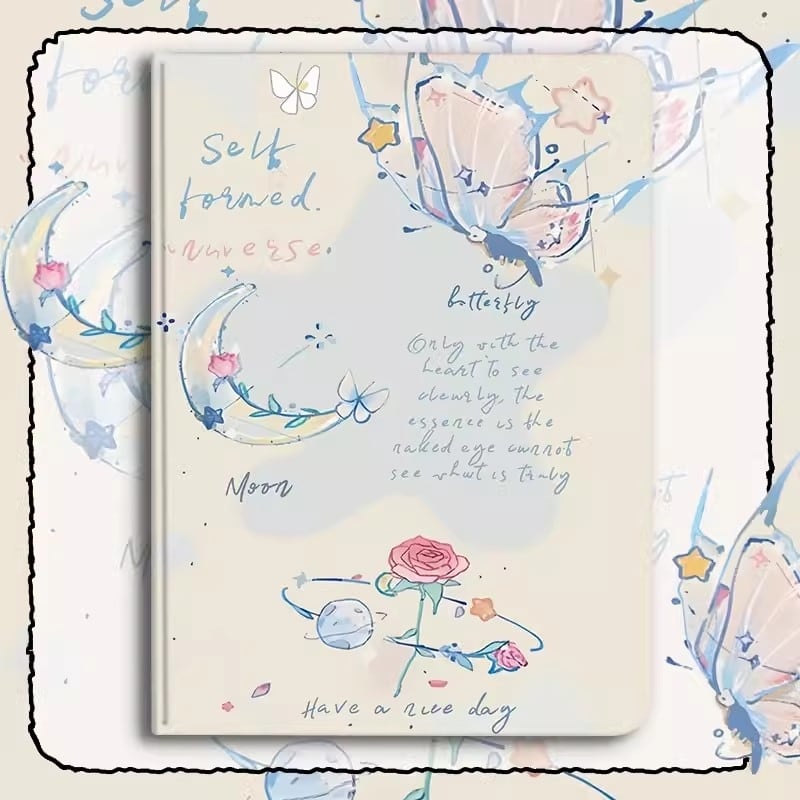 Self
formed.
universe.
butterfly
Only with the
heart to see
clearly, the
essence is the
naked eye cannot
see what is truly
Moon
Have a nice day